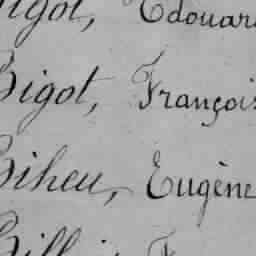 Bigot, Edouard
Bigot, François
Biheu, Eugène